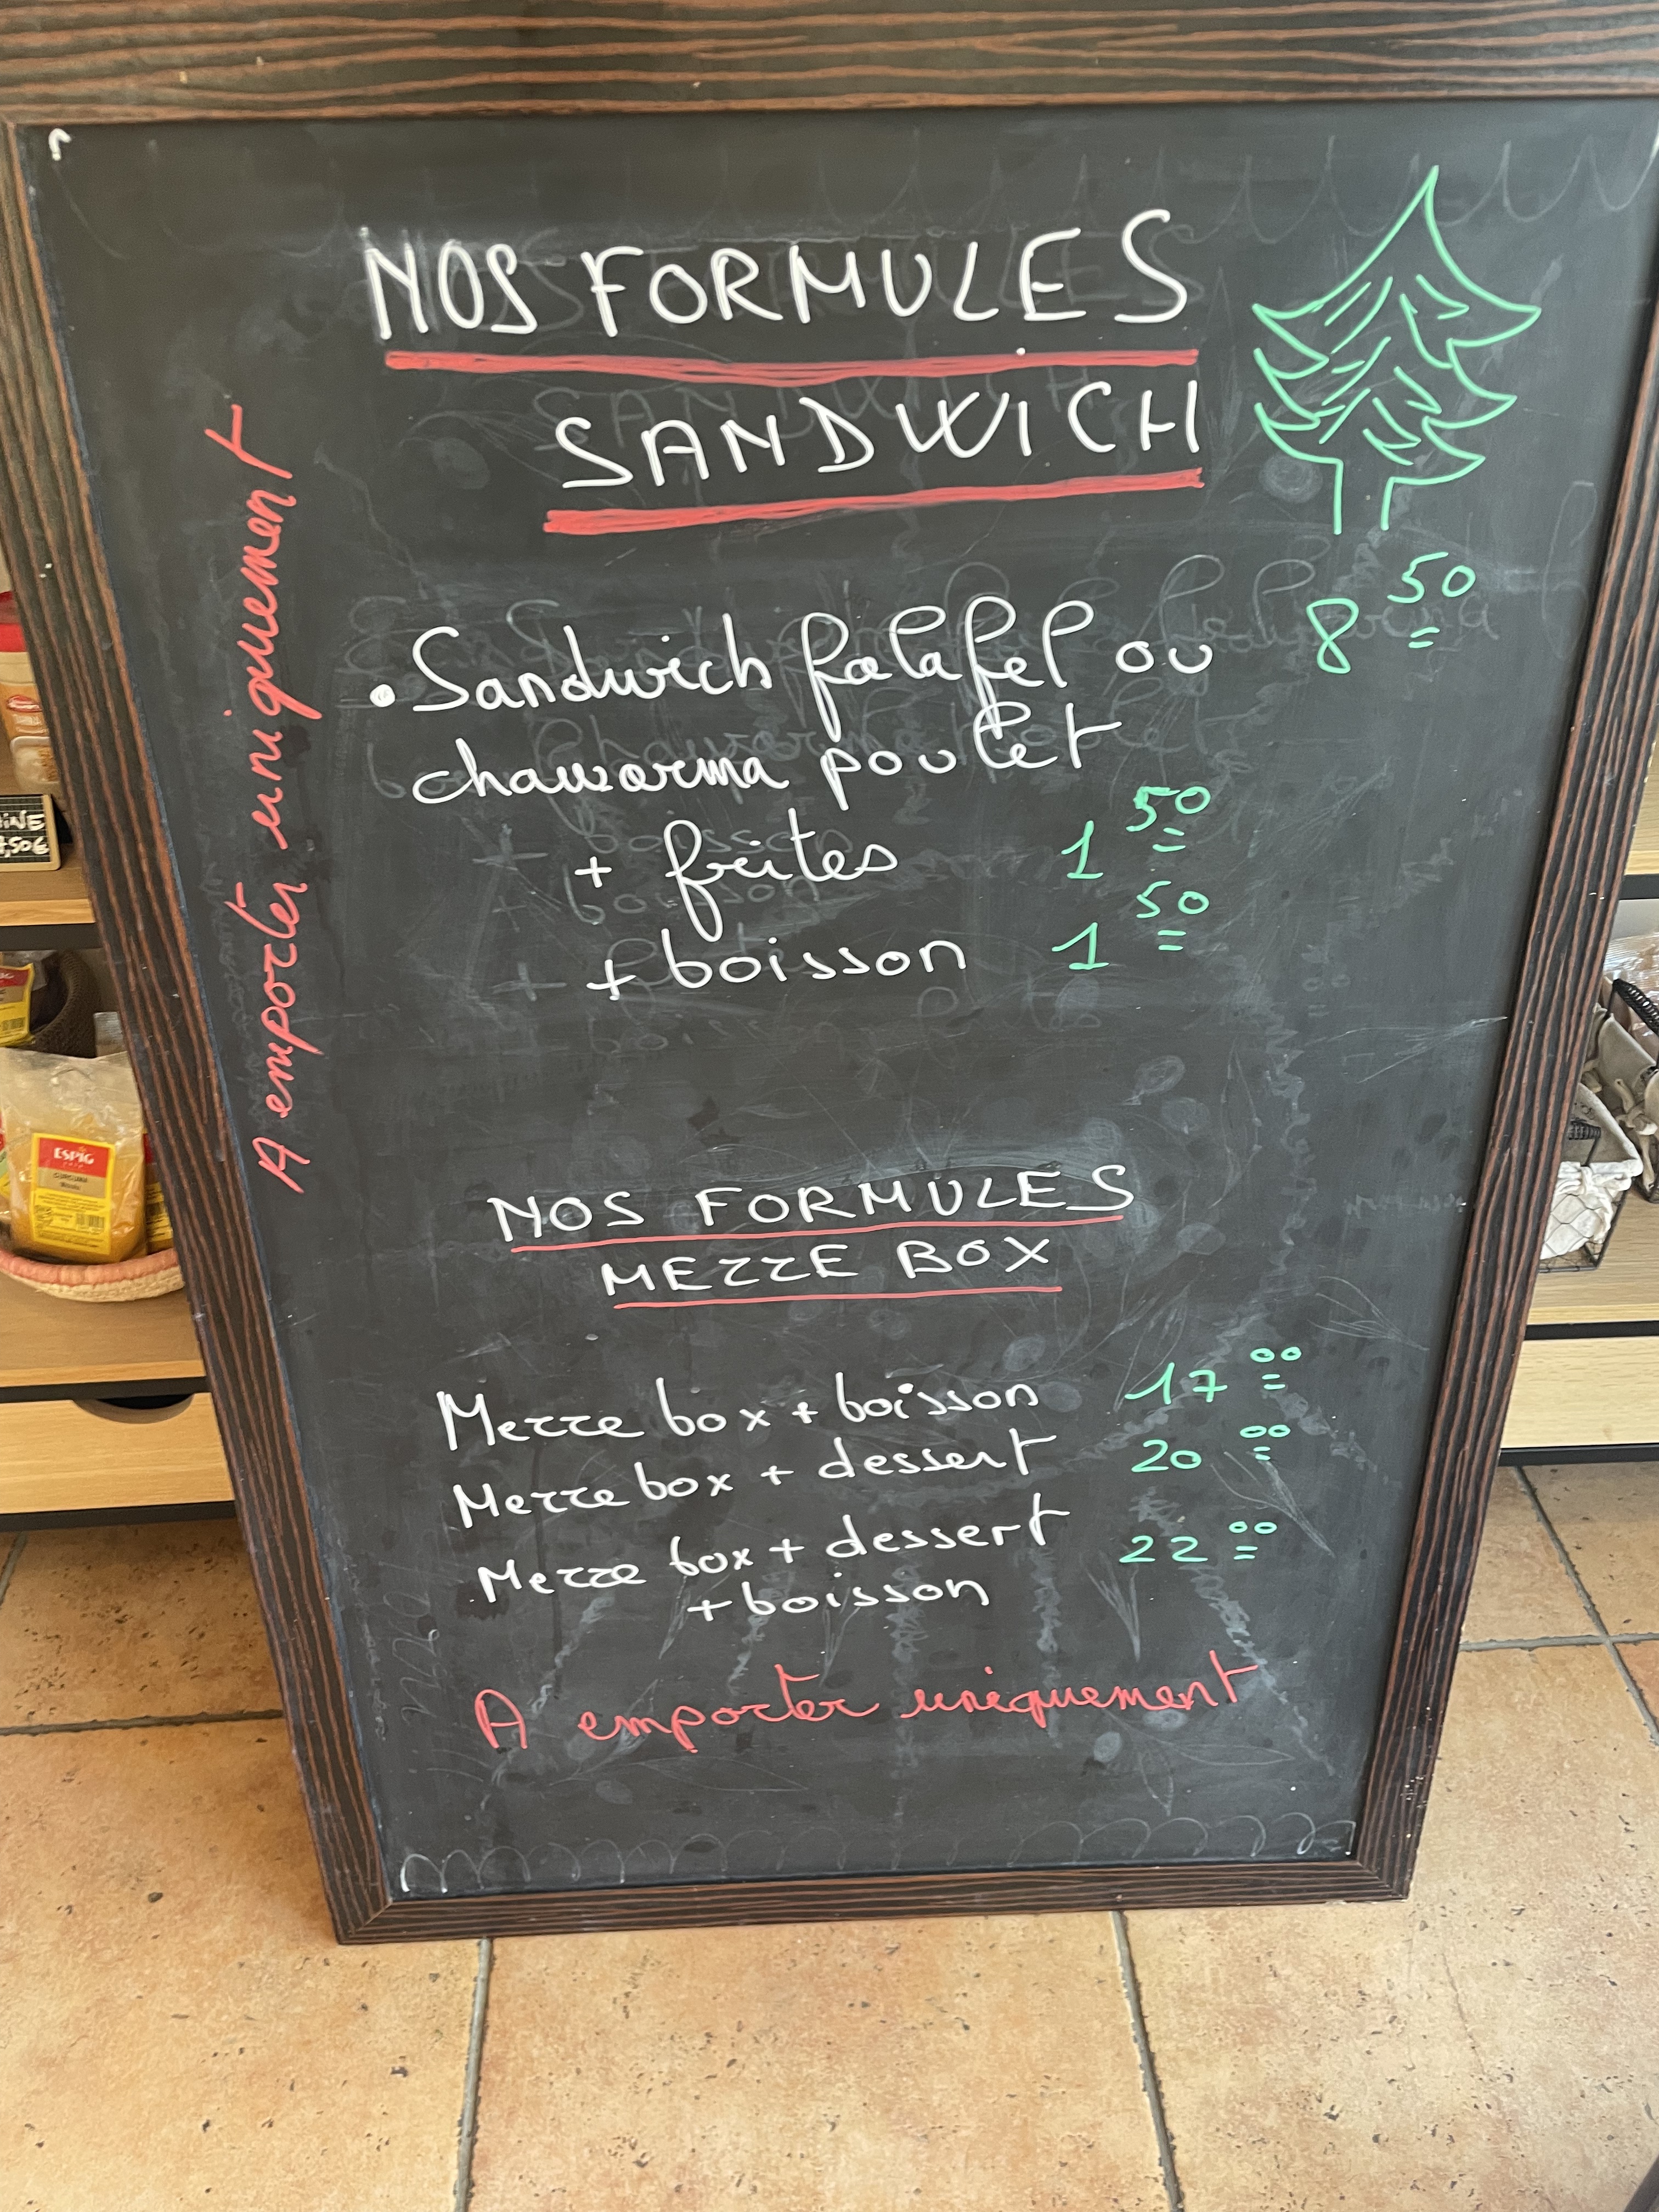 NOS FORMULES
SANDWICH
• Sandwich falafel ou 8 50
chawarma poulet
+ frites 1 50
+ boisson 1 50
A emporter uniquement
NOS FORMULES
MEZZE BOX
Mezze box + boisson 17 00
Mezze box + dessert 20 00
Mezze box + dessert 22 00
+ boisson
A emporter uniquement
ESPIG
CURCUMA